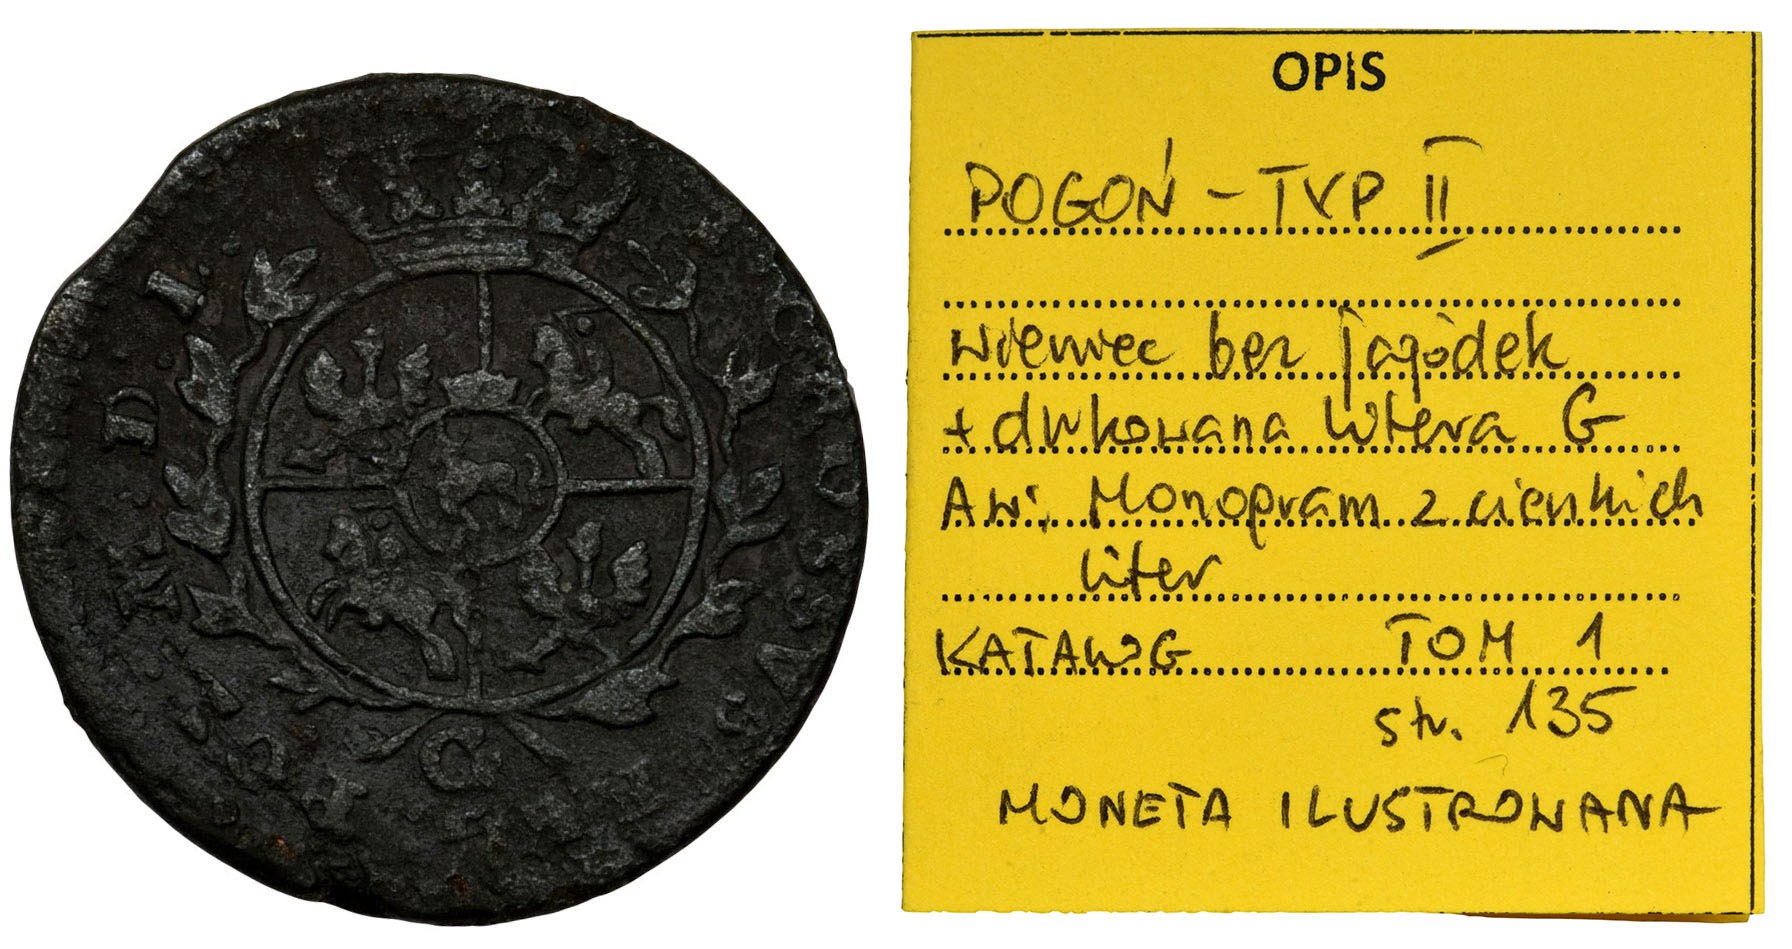 OPIS
POGOŃ - TYP II
wieniec bez jagódek
+ drukowana litera G
Aw: Monogram z cienkich
liter
KATALOG TOM 1
str. 135
MONETA ILUSTROWANA
D. I.
M.
G